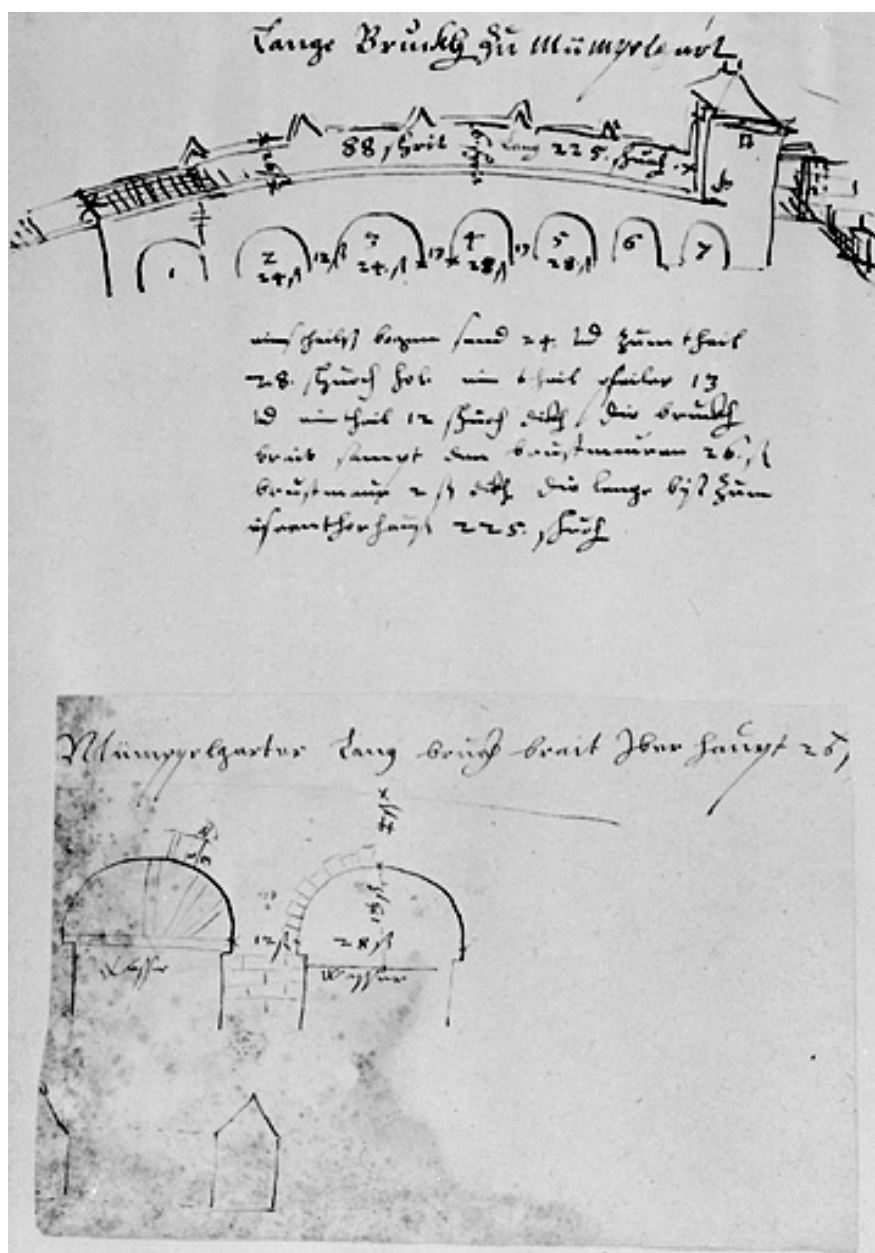 Lange Bruckh zu Mümpelgart
88 schrit Lang 225. schuch
1 2 3 4 5 6 7
24. s 12 s 24. s 13 28 s 13 28. s
bogen send 24. vnd zum theil
28. schuch ein theil pfeiler 13
vnd ein theil 12 schuch dikh, die bruckh
brait sampt den brustmauren 26. s
brustmaur 2 s dikh die lenge bis zum
225. schuch
Mümppelgarter Lang brugh brait Iber haupt 26 s
12 s 28 s
Wasser Wasser